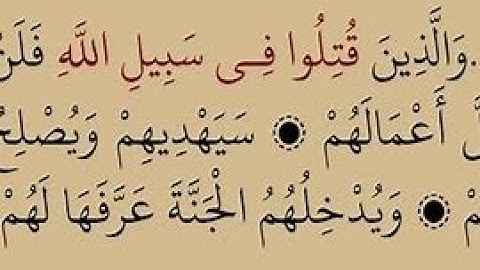 ..وَالَّذِينَ قُتِلُوا فِى سَبِيلِ اللَّهِ فَلَنْ
أَعْمَالَهُمْ ۝ سَيَهْدِيهِمْ وَيُصْلِحُ
۝ وَيُدْخِلُهُمُ الْجَنَّةَ عَرَّفَهَا لَهُمْ